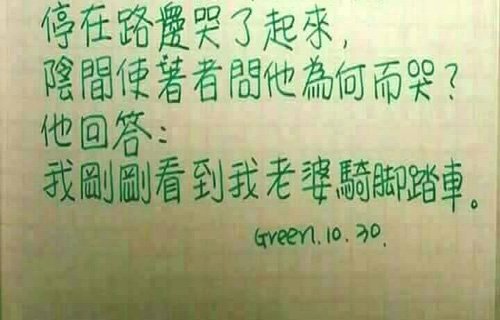 停在路邊哭了起來，
陰間使著者問他為何而哭？
他回答：
我剛剛看到我老婆騎脚踏車。
Green.10.30.